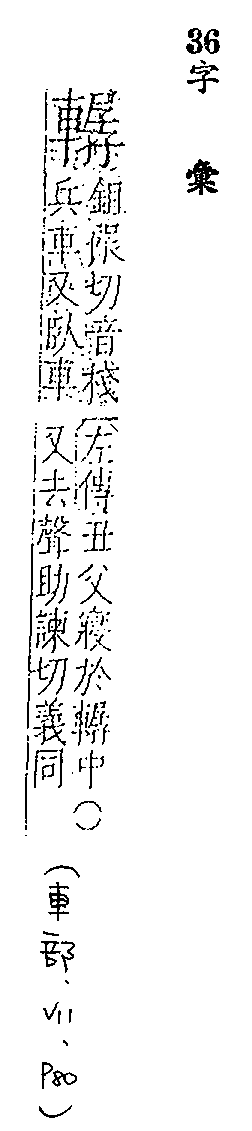 36字 彙
轏
鉏限切音棧
兵車又臥車
左傳丑父寢於轏中○
又去聲助諫切義同
(車部、VII、P80)